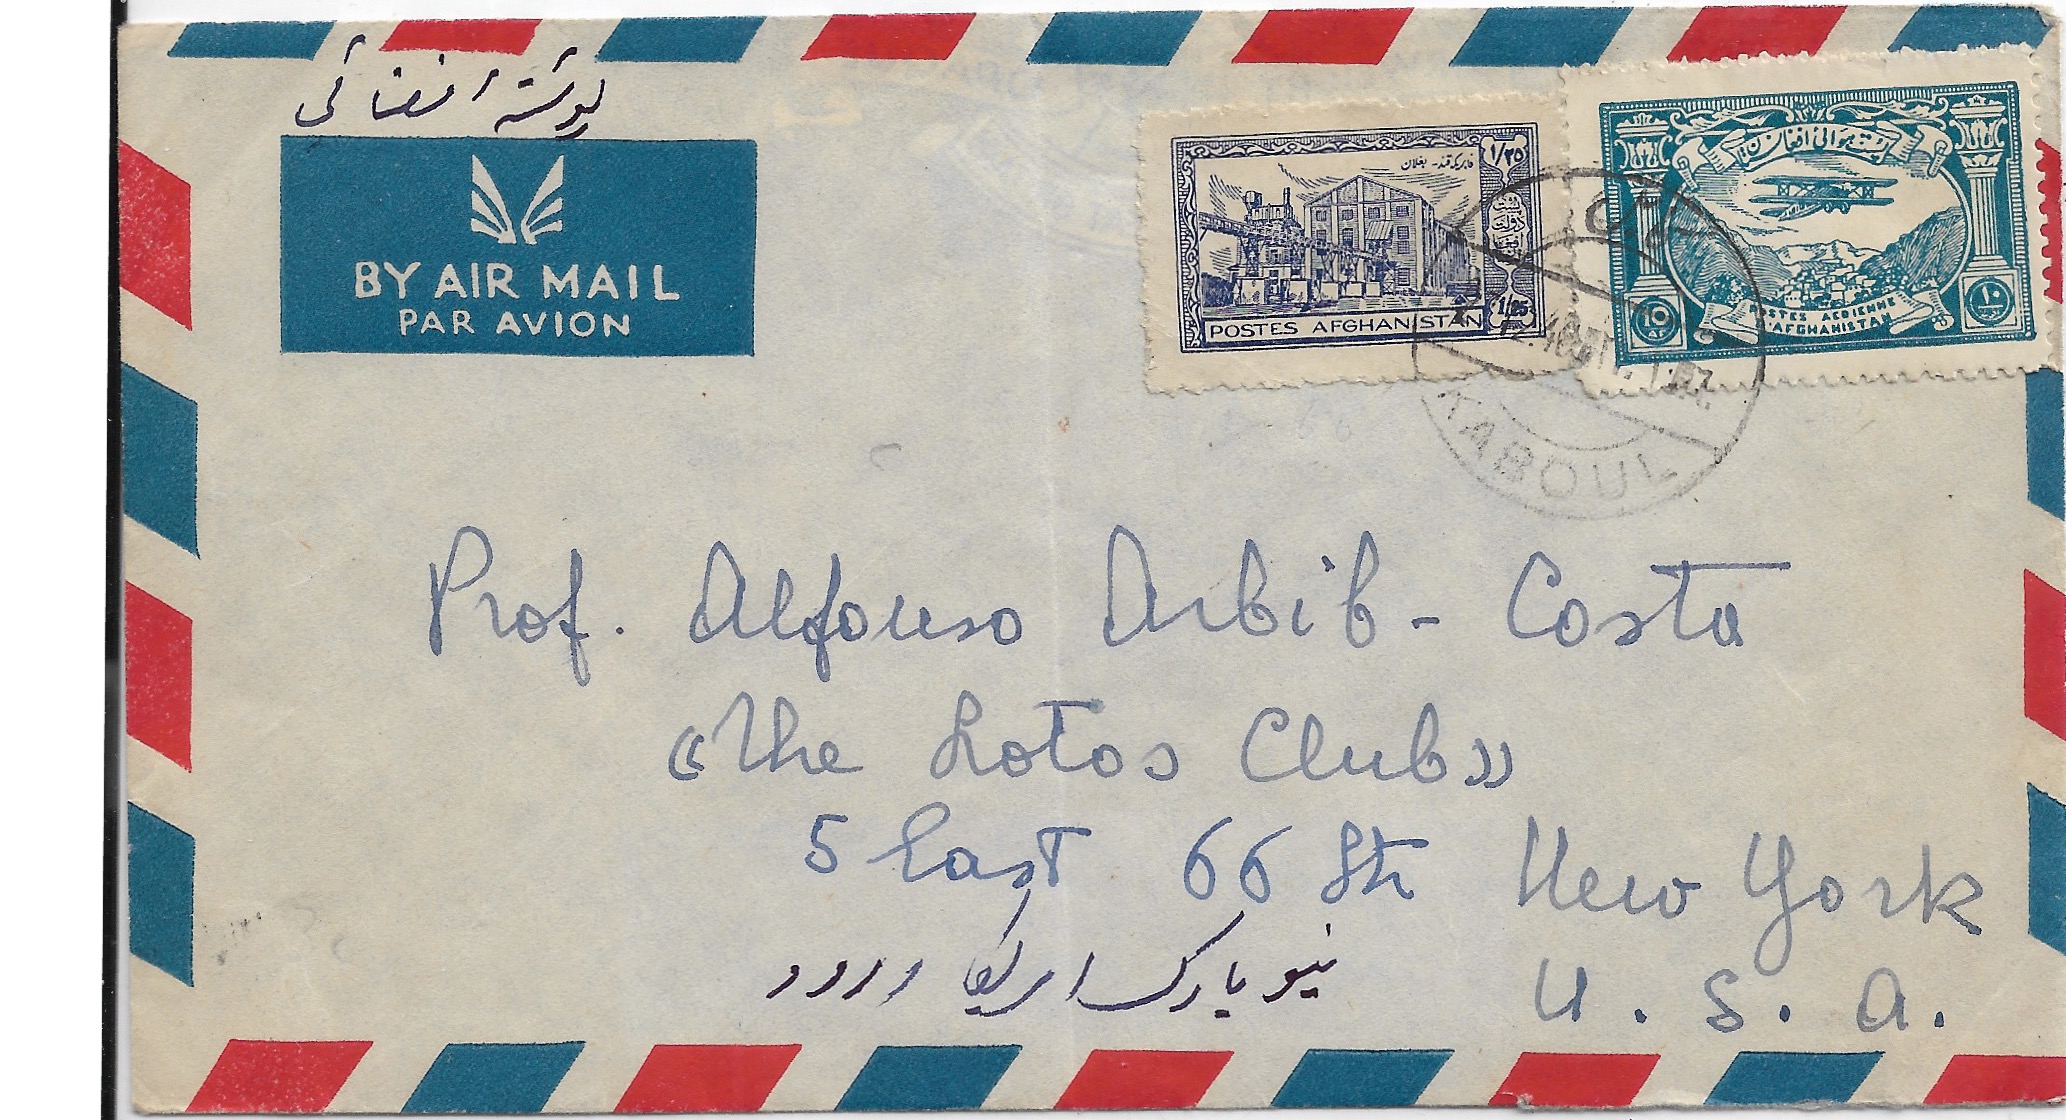 پوسته افضائی
BY AIR MAIL
PAR AVION
فابریکه قند - بغلان
۱/۲۵
1/25
POSTES AFGHANISTAN
۱۰
10
AF
POSTES AERIENNE
D'AFGHANISTAN
KABOUL
Prof. Alfonso Arbib - Costa
«The Lotos Club»
5 East 66 Str New York
نیو یارک امریکا وررد
U. S. A.